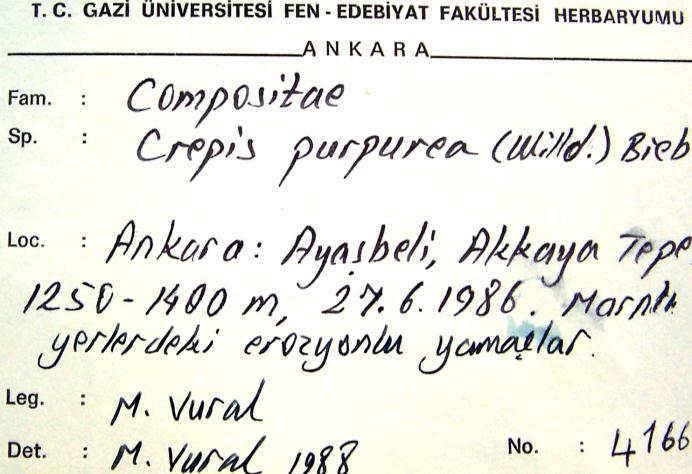 T. C. GAZİ ÜNİVERSİTESİ FEN - EDEBİYAT FAKÜLTESİ HERBARYUMU
ANKARA
Fam. : Compositae
Sp. : Crepis purpurea (Willd.) Bieb
Loc. : Ankara: Ayaşbeli, Akkaya Tepe
1250-1400 m, 27.6.1986. Marnlı
yerlerdeki erozyonlu yamaçlar.
Leg. : M. Vural
Det. : M. Vural 1988 No. : 4166